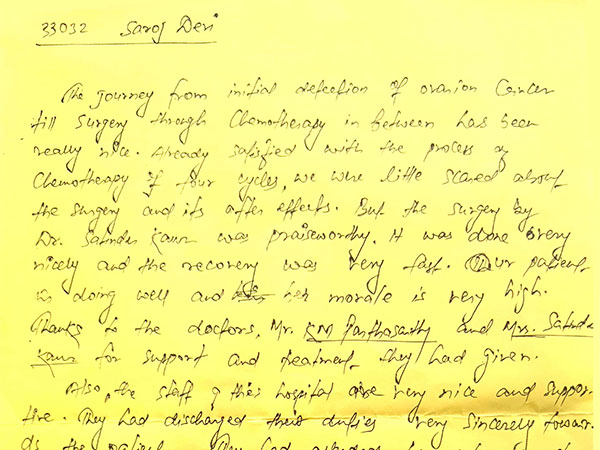 33032 Saroj Devi
The journey from initial detection of ovarion Cancer
till Surgery through Chemotherapy in between has been
really nice. Already satisfied with the process of
Chemotherapy of four cycles, we were little scared about
the surgery and its after effects. But the surgery by
Dr. Satinder Kaur was praiseworthy. It was done very
nicely and the recovery was very fast. Our patient
is doing well and her morale is very high.
Thanks to the doctors, Mr. KM Parthasarthy and Mrs. Satinde
Kaur for support and treatment they had given.
Also, the staff of this hospital are very nice and suppor-
tive. They had discharged their duties very sincerely towar-
ds the patient. They had